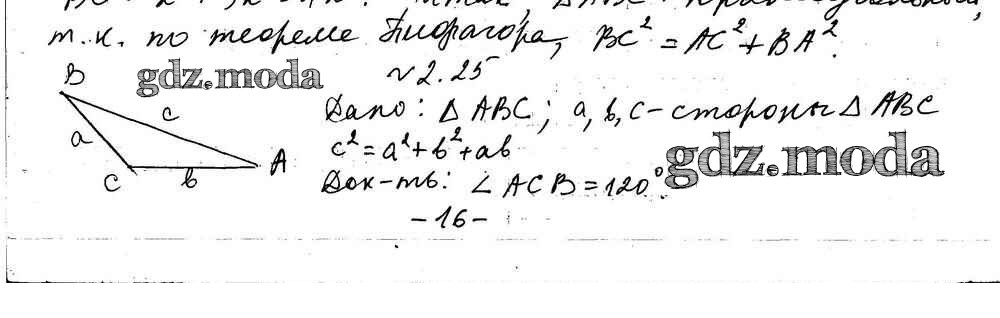 т.к. по теореме Пифагора, BC² = AC² + BA².
№ 2.25
gdz.moda
B
c
a
A
C
b
Дано: △ ABC; a, b, c - стороны △ ABC
c² = a² + b² + ab
Док-ть: ∠ ACB = 120°.
gdz.moda
- 16 -